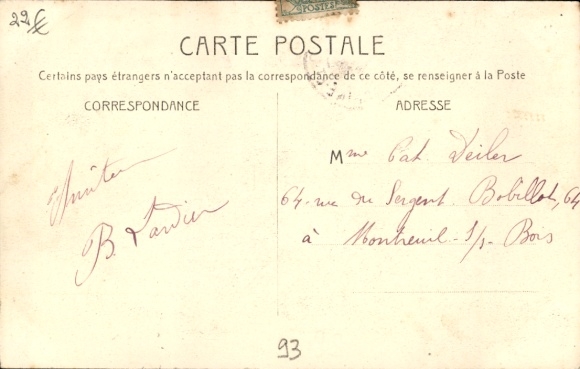 22€
CARTE POSTALE
Certains pays étrangers n'acceptant pas la correspondance de ce côté, se renseigner à la Poste
CORRESPONDANCE
ADRESSE
Amitié
B. Tardieu
Mme Cat Deiler
64 rue du Sergent Bobillot, 64
à Montreuil-s/s-Bois
93